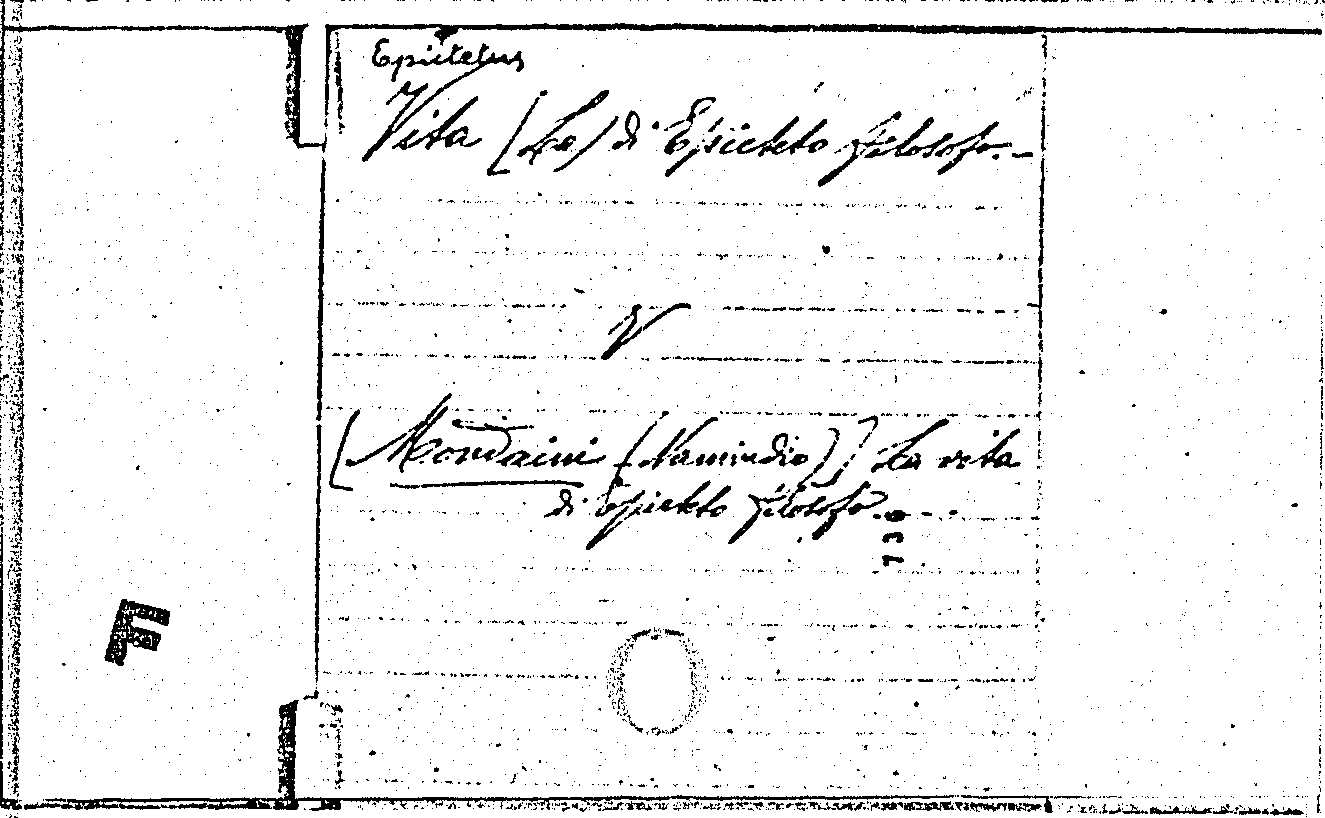 Epictetus
Vita [(La) di Epicteto filosofo.-
V
[Mondaini (Namindio)] La vita
di Epicteto filosofo.---
730
F